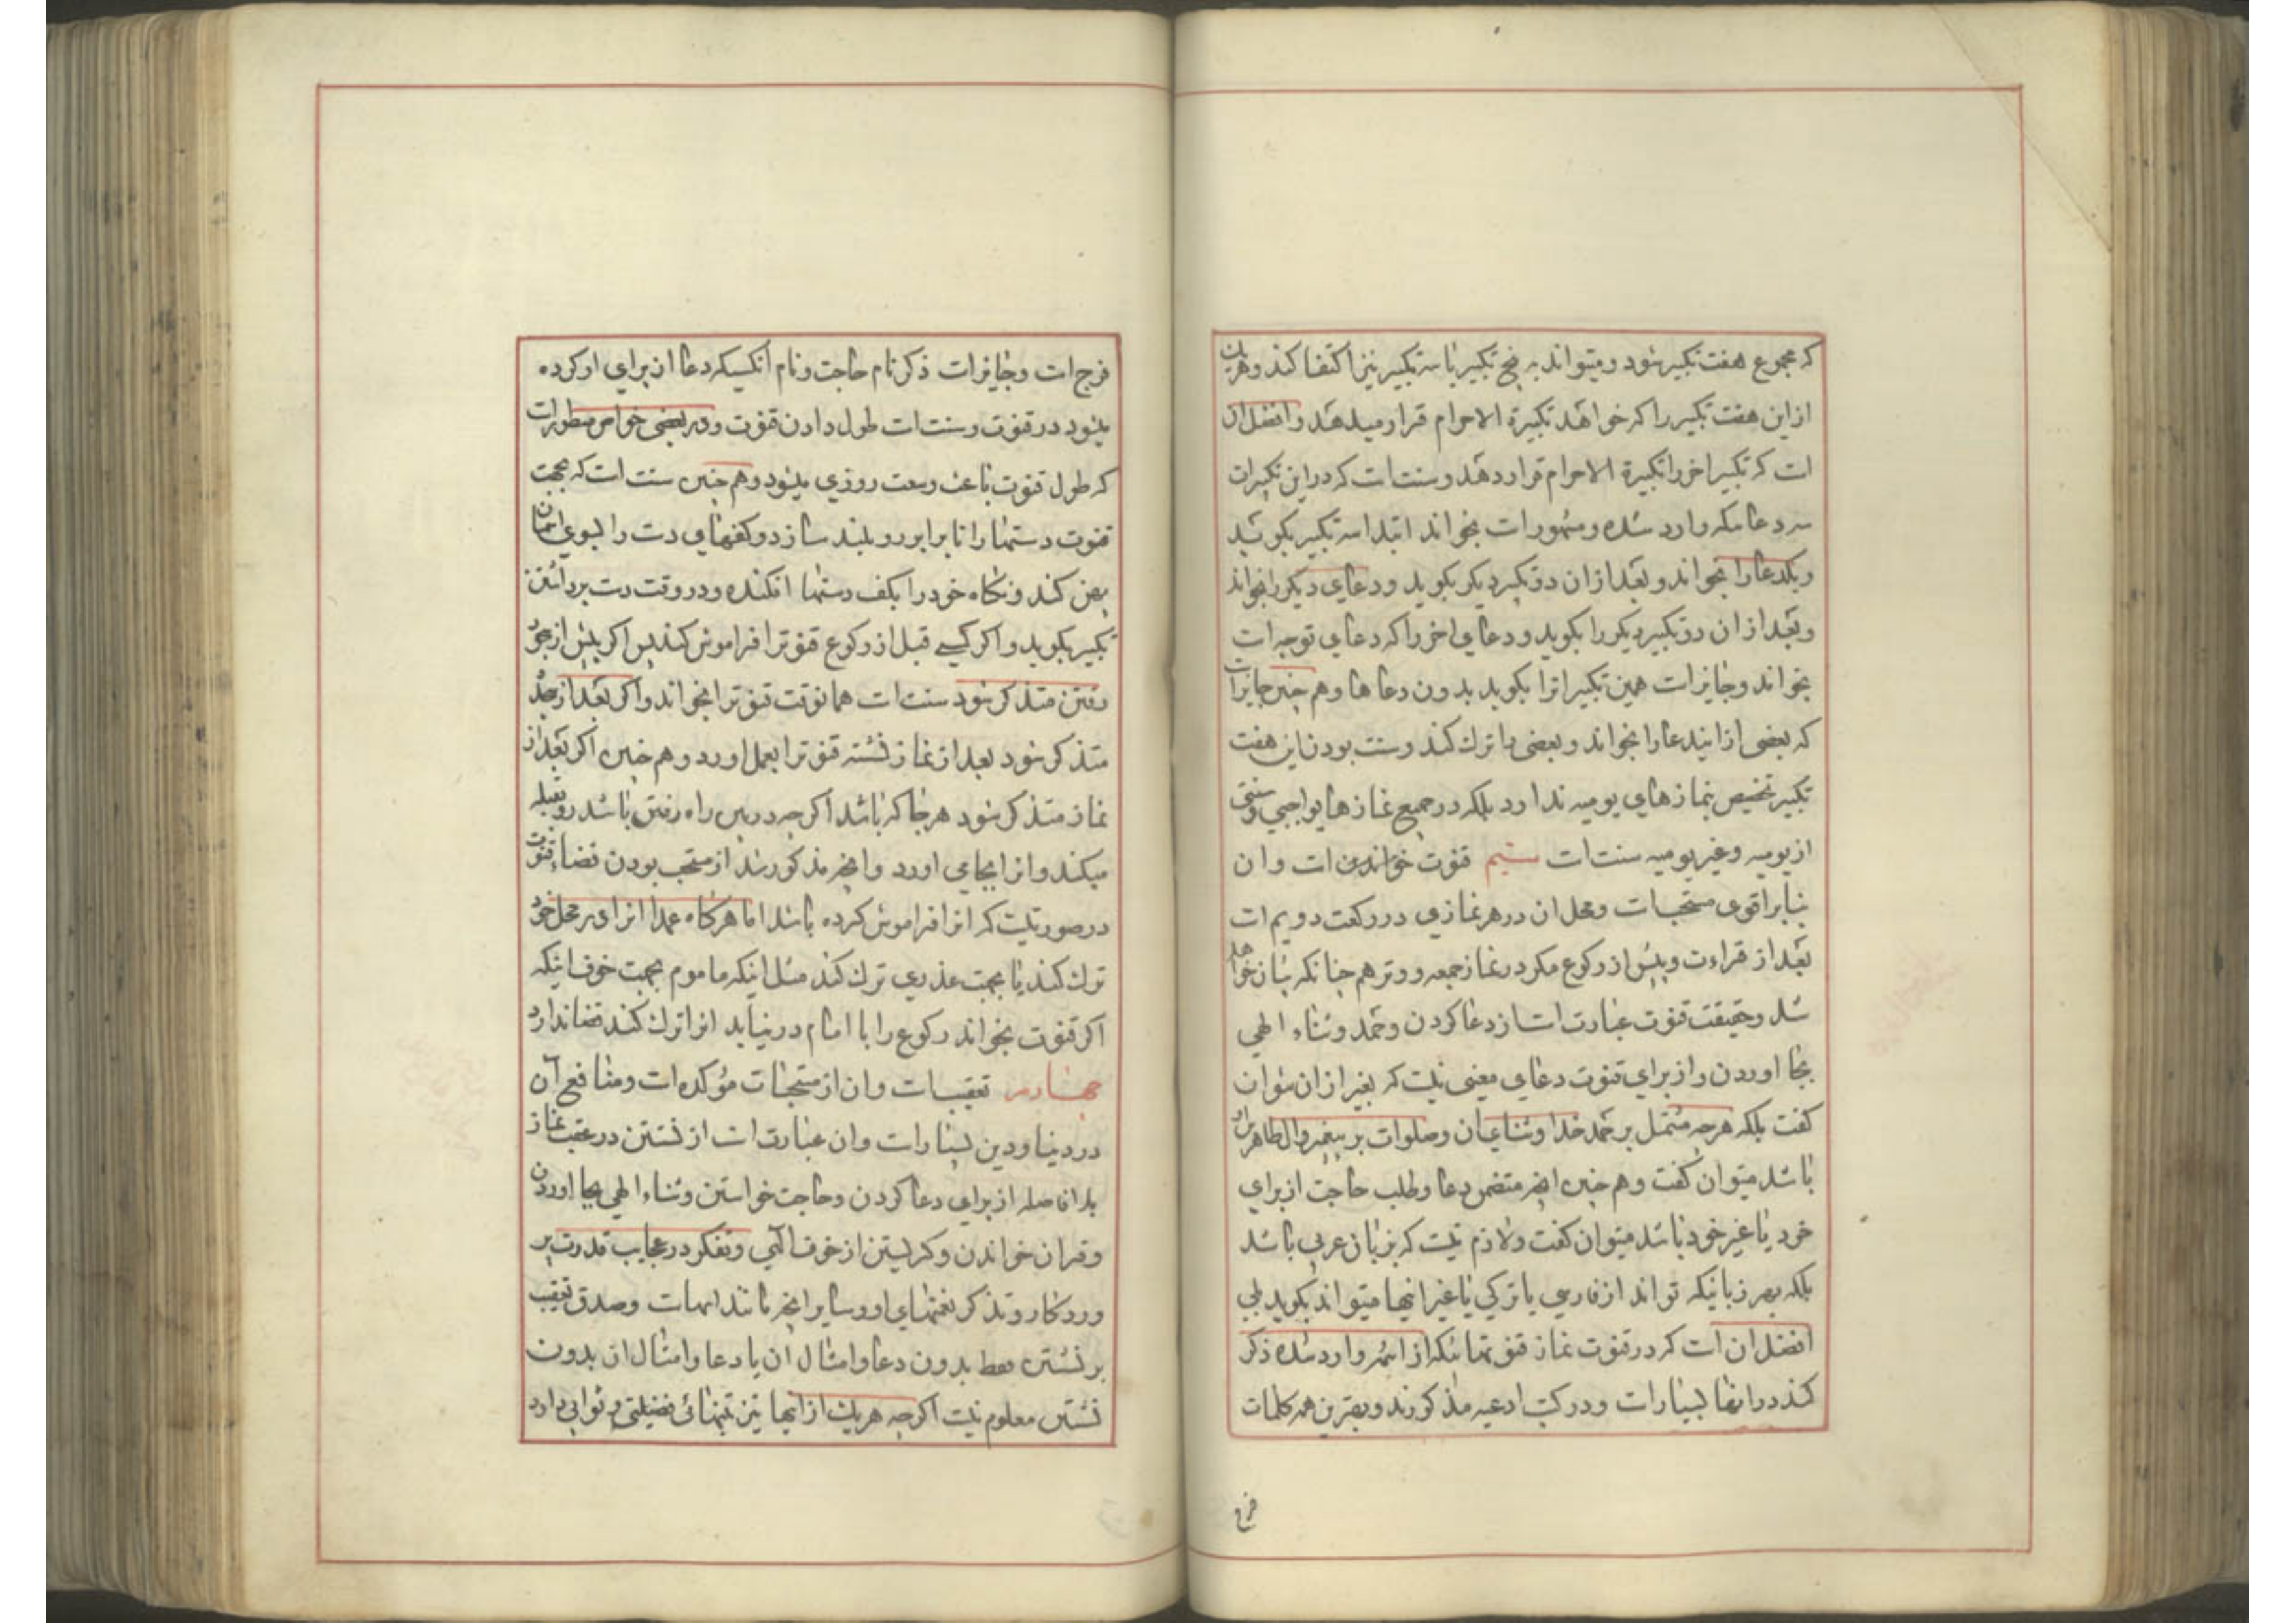 که مجموع هفت تکبیر شود و میتواند به پنج تکبیر یا سه تکبیر نیز اکتفا کند و هریک
از این هفت تکبیر را که خواهد تکبیرة الاحرام قرار میدهد و افضل ان
است که تکبیر اخر را تکبیرة الاحرام قرار دهد و سنت است که در این تکبیرات
سه دعائیکه وارد شده و مشهور است بخواند ابتدا سه تکبیر بکوید
و یکدعا را بخواند و بعد از ان دو تکبیر دیکر بکوید و دعای دیکر را بخواند
و بعد از ان دو تکبیر دیکر را بکوید و دعای اخر را که دعای توجه است
بخواند و جایز است همین تکبیرات را بکوید بدون دعاها و هم چنین جایز است
که بعضی از ایندعا را بخواند و بعضی را ترك کند و سنت بودن این هفت
تکبیر تخصیص بنمازهای یومیه ندارد بلکه در جمیع نمازها یواجبی و سنتی
از یومیه و غیر یومیه سنت است سیم قنوت خواندن است و ان
بنابر اقوی مستحب است و محل ان در هر نمازی در رکعت دویم است
بعد از قراءت و پیش از رکوع مکر در نماز جمعه و وتر هم چنانکه بیان خواهد
شد و حقیقت قنوت عبارت است از دعا کردن و حمد و ثناء الهی
بجا اوردن و از برای قنوت دعای معینی نیست که بغیر از ان نتوان
کفت بلکه هرچه مشتمل بر حمد خدا و ثنای ان و صلوات بر پیغمبر و ال طاهرین او
باشد میتوان کفت و هم چنین انچه متضمن دعا و طلب حاجت از برای
خود یا غیر خود باشد میتوان کفت و لازم نیست که بزبان عربی باشد
بلکه بهر زبانیکه تواند از فارسی یا ترکی یا غیر انها میتواند بکوید بلی
افضل ان است که در قنوت نماز قنوتهائیکه از ائمه وارد شده ذکر
کند در انها بسیار است و در کتب ادعیه مذکورند و بهترین همه کلمات
فرج
فرج است و جایز است ذکر نام حاجت و نام انکسیکه دعا از برای او کرده
میشود در قنوت و سنت است طول دادن قنوت و در بعضی خواص مسطور است
که طول قنوت باعث وسعت روزی میشود و هم چنین سنت است که بجهت
قنوت دستها را تا برابر رو بلند سازد و کفهای دست را بسوی اسمان
پهن کند و نکاه خود را بکف دستها افکنده و در وقت دست برداشتن
تکبیر بکوید و اکر کسی قبل از رکوع قنوترا فراموش کند پس اکر پیش از سجود
رفتن متذکر شود سنت است همانوقت قنوترا بخواند و اکر بعد از سجده
متذکر شود بعد از نماز نشسته قنوترا بعمل اورد و هم چنین اکر بعد از
نماز متذکر شود هر جا که باشد اکرچه در بین راه رفتن باشد رو بقبله
میکند و انرا بجا می اورد و انچه مذکور شد از مستحب بودن قضاء قنوت
در صورتیست که انرا فراموش کرده باشد اما هرکاه عمدا انرا در محل خود
ترك کند یا بجهت عذری ترك کند مثل اینکه ماموم بجهت خوف اینکه
اکر قنوت بخواند رکوع را با امام درنیابد انرا ترك کند قضا ندارد
چهارم تعقیب است و ان از مستحبات مؤکده است و منافع آن
در دنیا و دین بسیار است و ان عبارت است از نشستن در عقب نماز
بلا فاصله از برای دعا کردن و حاجت خواستن و ثناء الهی بجا اوردن
و قران خواندن و کریستن از خوف الهی و تفکر در عجایب قدرت پر
وردکار و تذکر نعمتهای او و سایر انچه مانند اینهاست و صدق تعقیب
بر نشستن فقط بدون دعا و امثال آن یا دعا و امثال ان بدون
نشستن معلوم نیست اکرچه هر یك از اینها نیز بتنهائی فضیلتی و ثوابی دارد